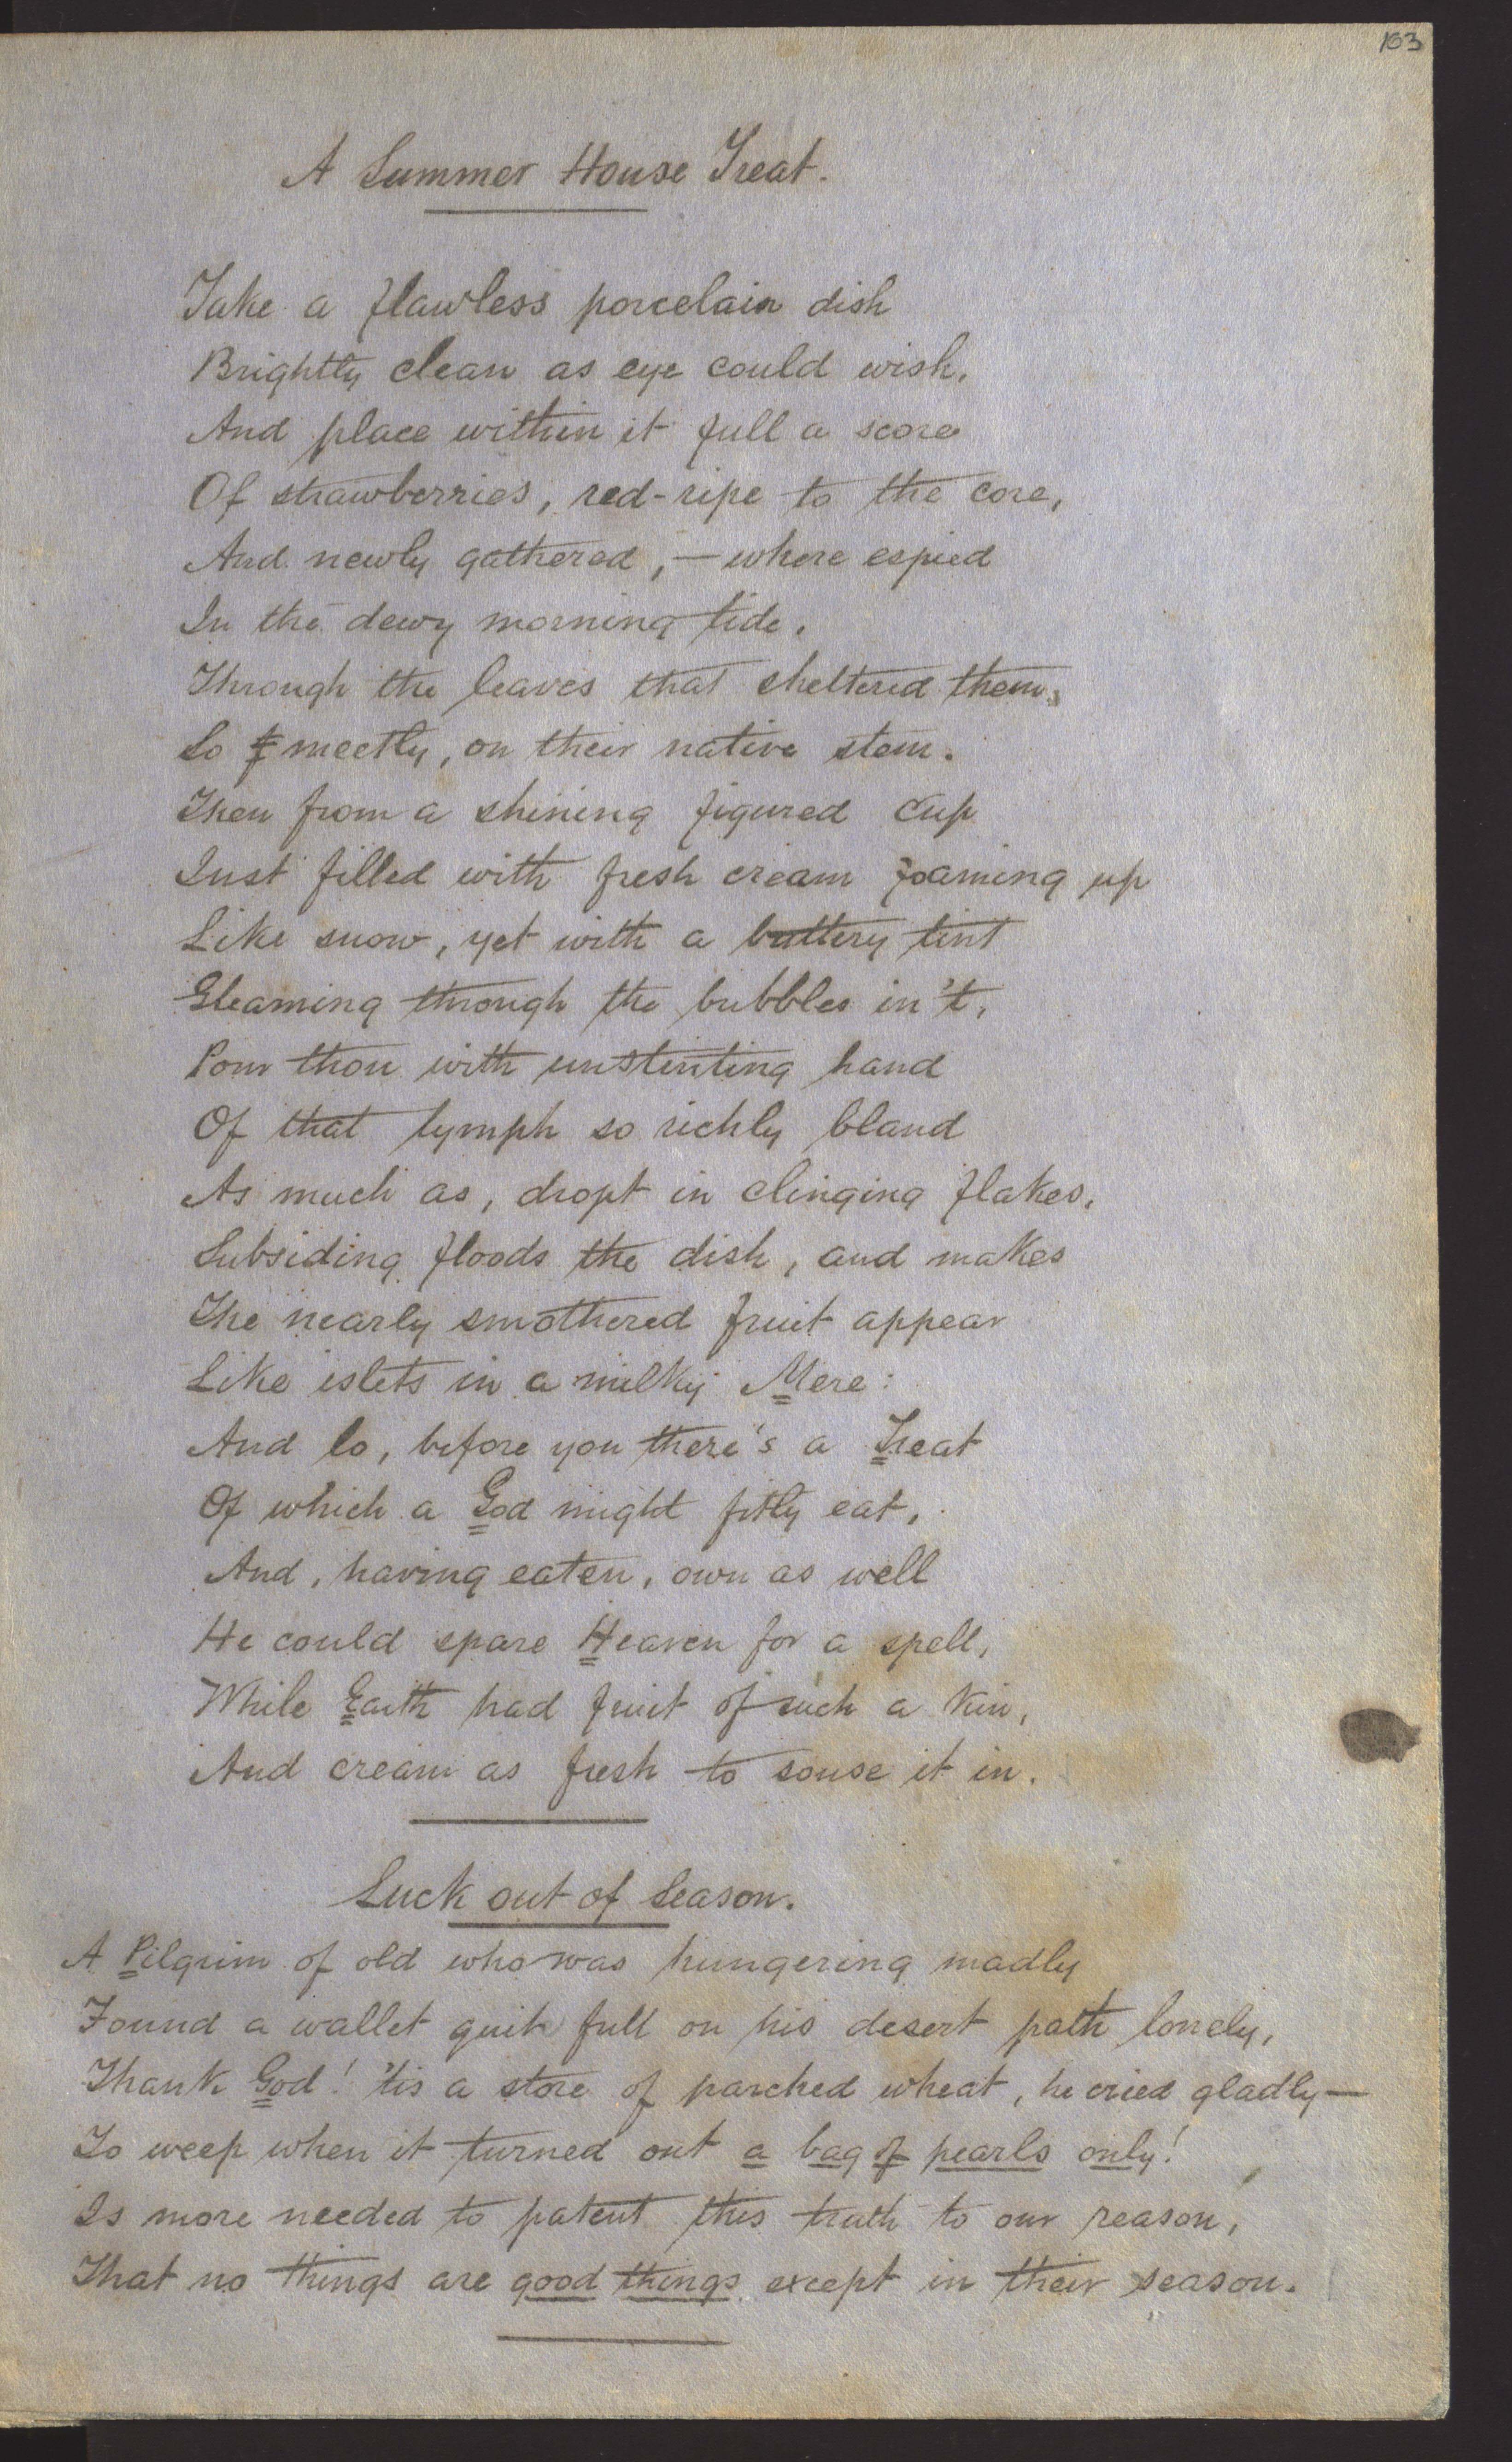 103
A Summer House Treat.
Take a flawless porcelain dish
Brightly clean as eye could wish,
And place within it full a score
Of strawberries, red-ripe to the core,
And newly gathered, — where espied
In the dewy morning tide,
Through the leaves that sheltered them,
So meetly, on their native stem.
Then from a shining figured cup
Just filled with fresh cream foaming up
Like snow, yet with a buttery tint
Gleaming through the bubbles in't,
Pour thou with unstinting hand
Of that lymph so richly bland
As much as, dropt in clinging flakes,
Subsiding floods the dish, and makes
The nearly smothered fruit appear
Like islets in a milky Mere:
And lo, before you there's a Treat
Of which a God might fitly eat,
And, having eaten, own as well
He could spare Heaven for a spell,
While Earth had fruit of such a kin,
And cream as fresh to souse it in.
Luck out of Season.
A Pilgrim of old who was hungering madly
Found a wallet quite full on his desert path lonely,
Thank God! 'tis a store of parched wheat, he cried gladly—
To weep when it turned out a bag of pearls only!
Is more needed to patent this truth to our reason,
That no things are good things except in their season.